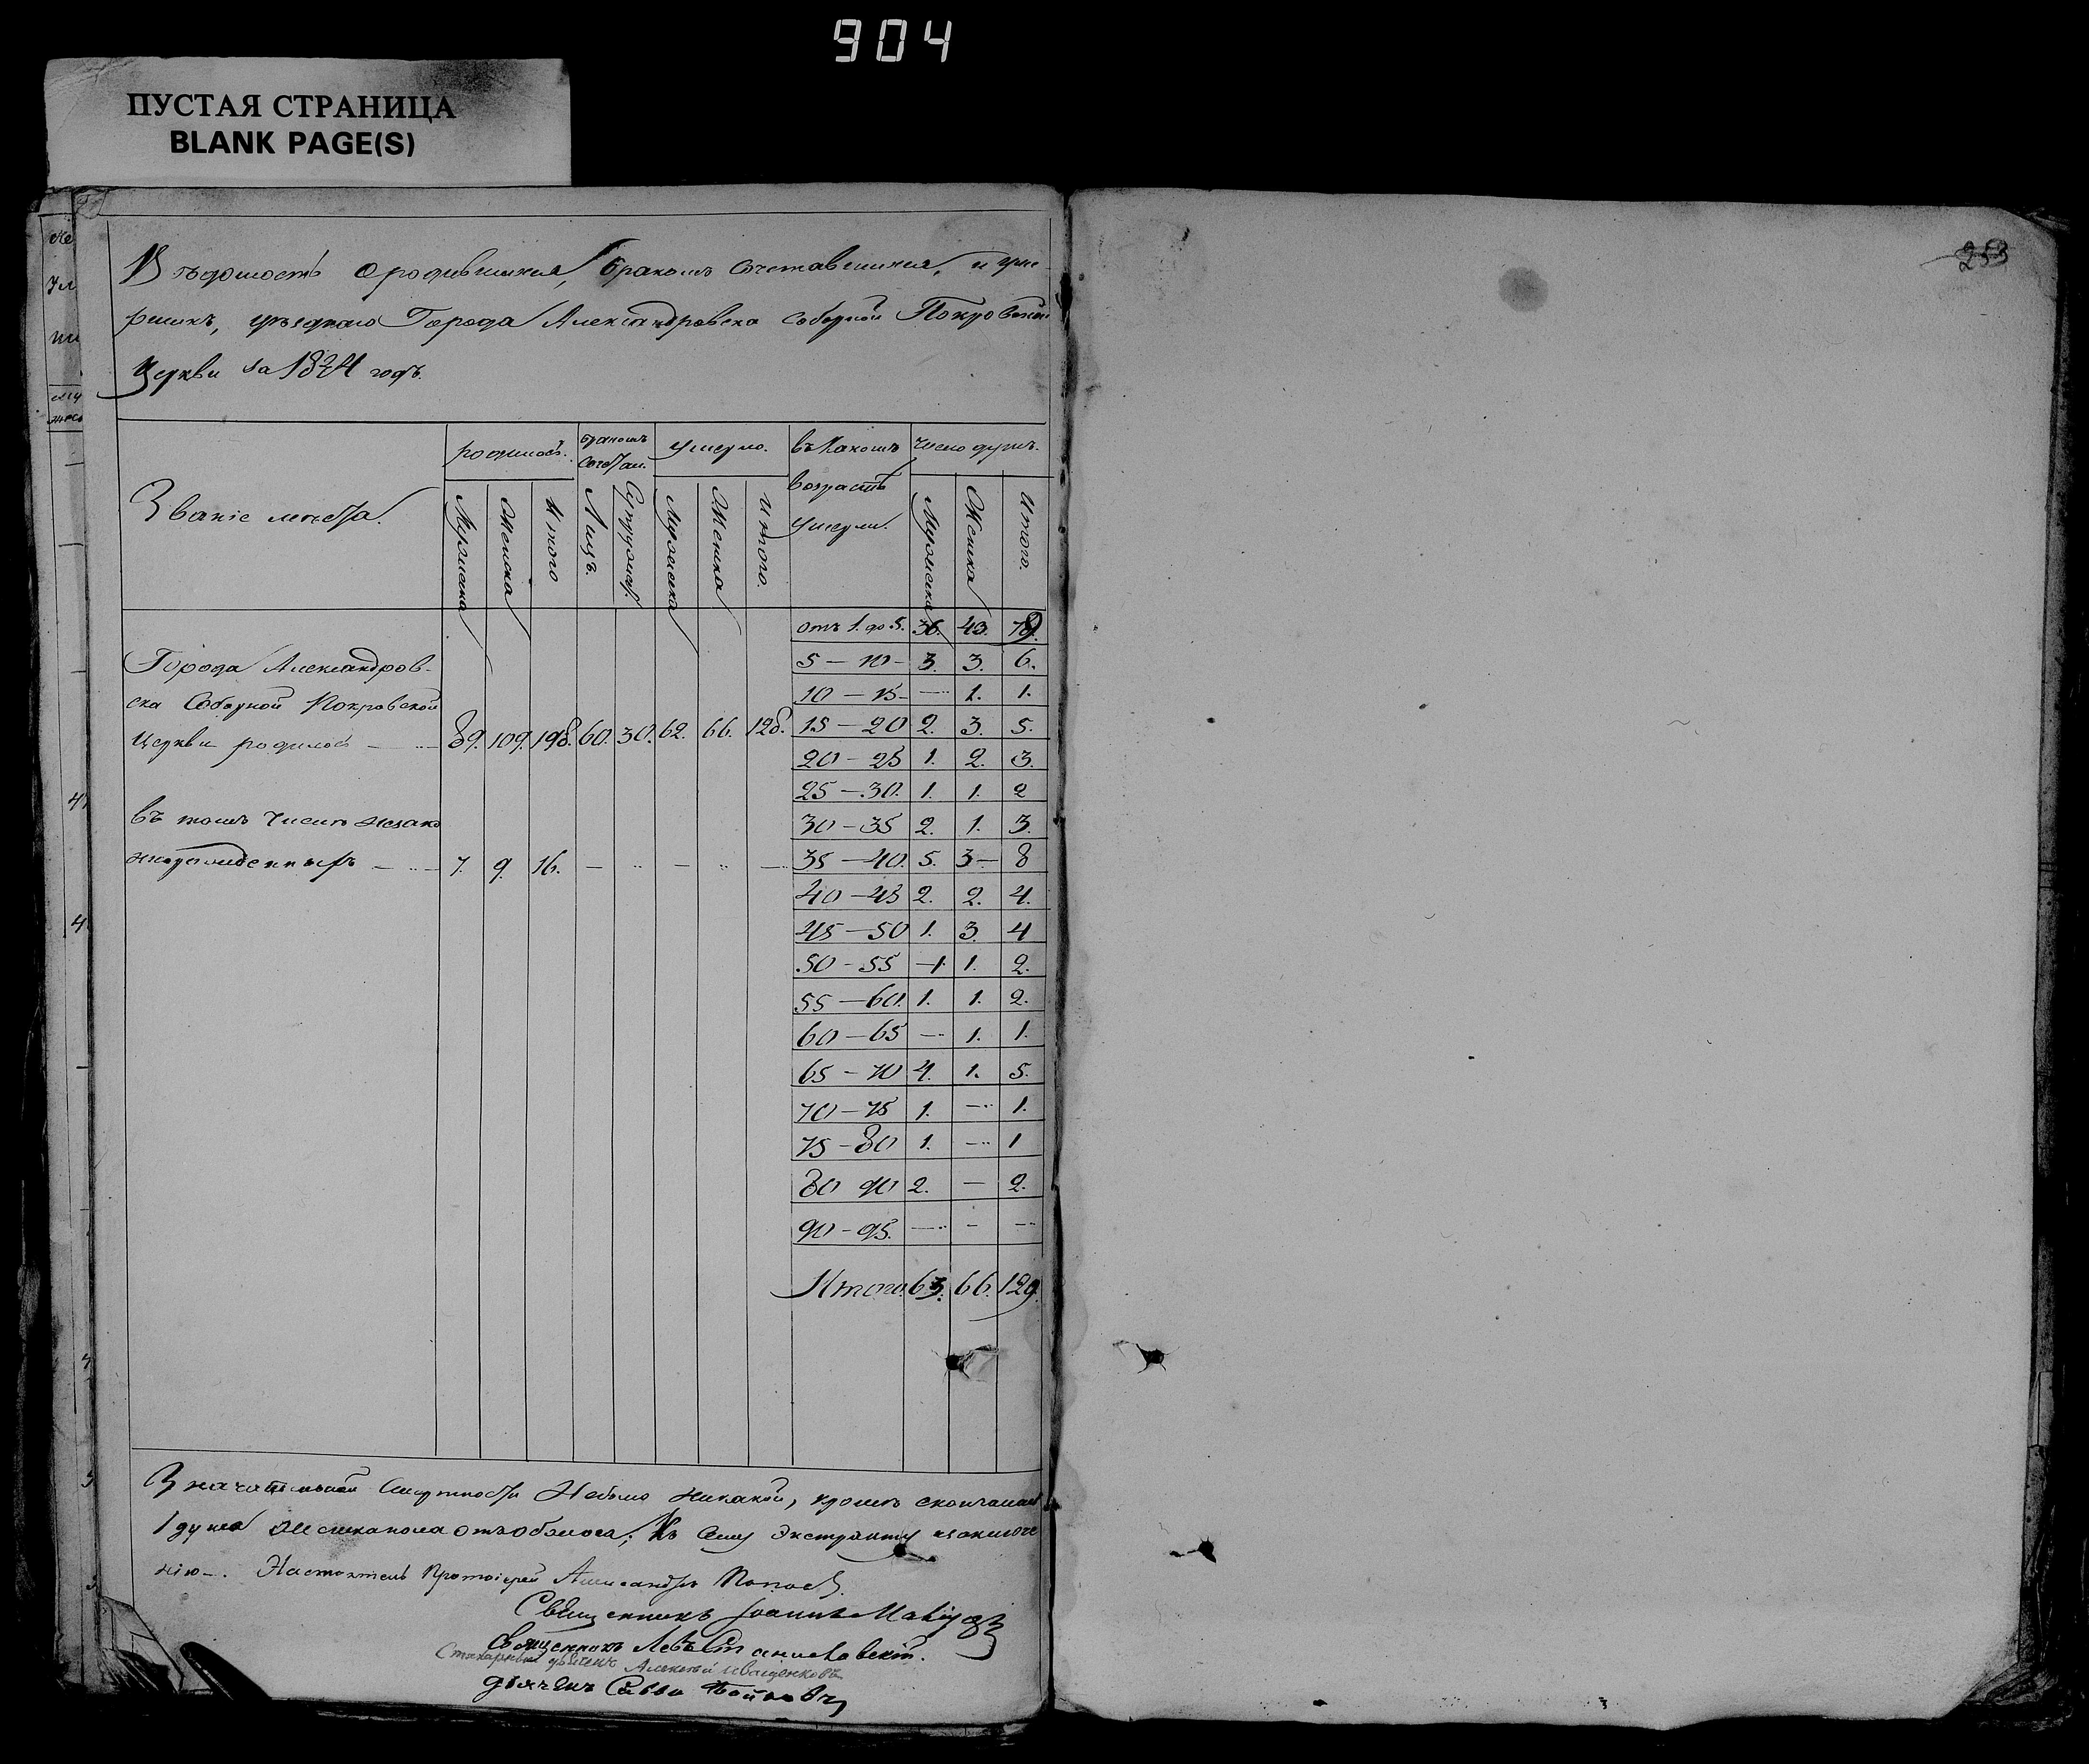 904
ПУСТАЯ СТРАНИЦА
BLANK PAGE(S)
253
Вѣдомость о родившихся, бракомъ сочетавшихся, и уме
ршихъ, уѣзднаго Города Александровска Соборной Покровской
Церкви за 1824 годъ.
Званіе мѣста.
родилось.
бракомъ сочетан.
умерло.
въ какомъ возрастѣ умерли.
число душъ.
Мужеска Женска Итого Лицъ. Супружес. Мужеска Женска Итого. Мужеска Женска Итого.
Города Александров-
ска Соборной Покровской
Церкви родилось — 89. 109. 198. 60. 30. 62. 66. 128.
въ томъ числѣ незако
ннорожденныхъ — 7. 9. 16. — — — — —
отъ 1. до 5. 36. 43. 79.
5 — 10 - 3. 3. 6.
10 — 15 - — 1. 1.
15 — 20 2. 3. 5.
20 — 25 1. 2. 3.
25 — 30. 1. 1. 2
30 — 35 2. 1. 3.
35 — 40. 5. 3 — 8
40 — 45 2. 2. 4.
45 — 50 1. 3. 4
50 - 55 1. 1. 2.
55 — 60. 1. 1. 2.
60 — 65 — 1. 1.
65 — 70 4. 1. 5.
70 — 75 1. — 1.
75 — 80 1. — 1
80 90 2. — 2.
90 - 95. — - —
Итого. 63. 66. 129.
Значительной смертности не было никакой, кромѣ
1 душа женска пола отъ; Къ сему экстракту
нію —. Настоятель Протоіерей Александръ Поповъ.
Священникъ Іоаннъ
Священникъ Левъ Станиславскій.
Стихарный дьячекъ Алексѣй Иващенковъ
дьячекъ Савва